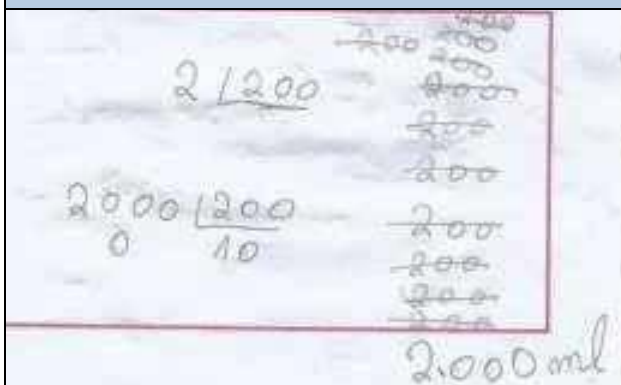 200
200 200
200
2 200
200
200
200
2000 200
0 10
200
200
200
200
2.000 ml